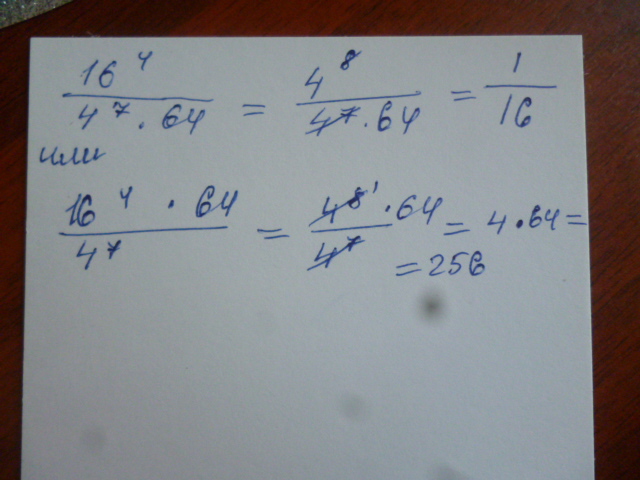 16⁴ / 4⁷ · 64 = 4⁸ / 4⁷ · 64 = 1 / 16
или
16⁴ · 64 / 4⁷ = 4⁸ ¹ · 64 / 4⁷ = 4 · 64 =
= 256